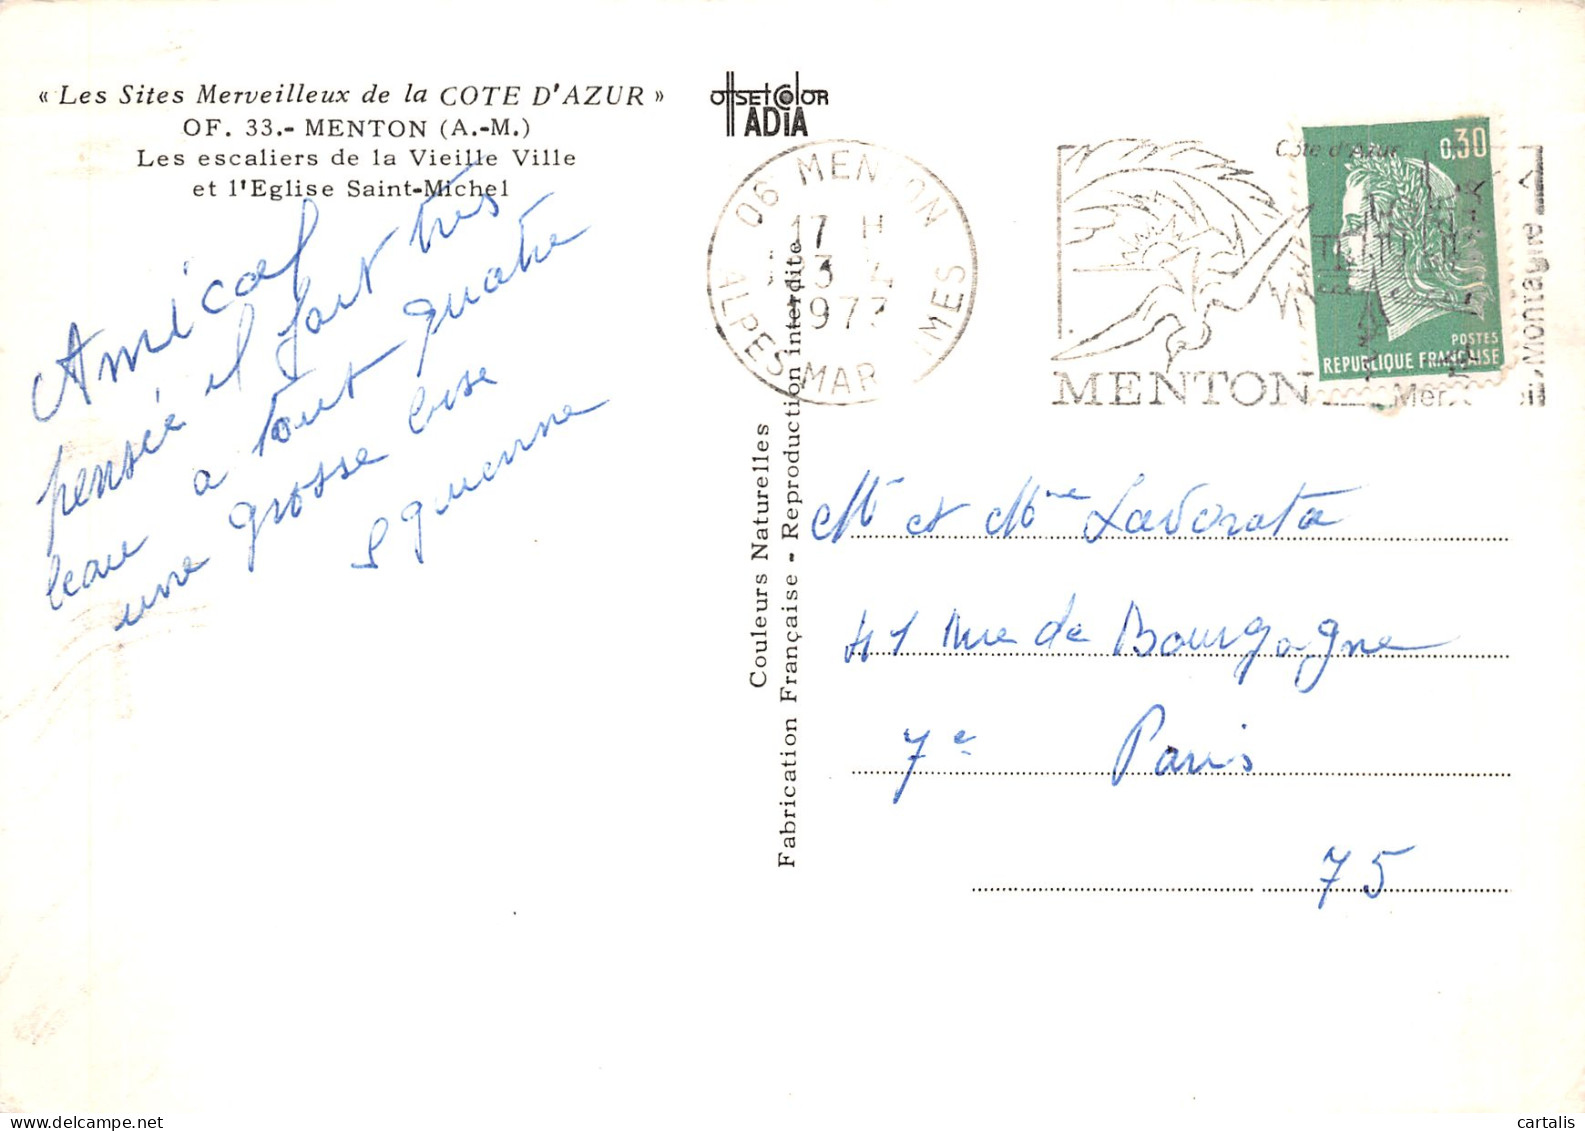 « Les Sites Merveilleux de la COTE D'AZUR »
OF. 33.- MENTON (A.-M.)
Les escaliers de la Vieille Ville
et l'Eglise Saint-Michel
Amical
pensée il fait très
beau a tout quatre
une grosse bise
OffSETColOR
ADIA
06 MENTON
17 H
3
1977
ALPES MAR MES
Côte d'Azur
MENTON
Mer
Montagne
0,30
POSTES
REPUBLIQUE FRANÇAISE
Couleurs Naturelles
Fabrication Française - Reproduction interdite
Mr et Mme Lavorata
41 Rue de Bourgogne
7e Paris
75
cartalis